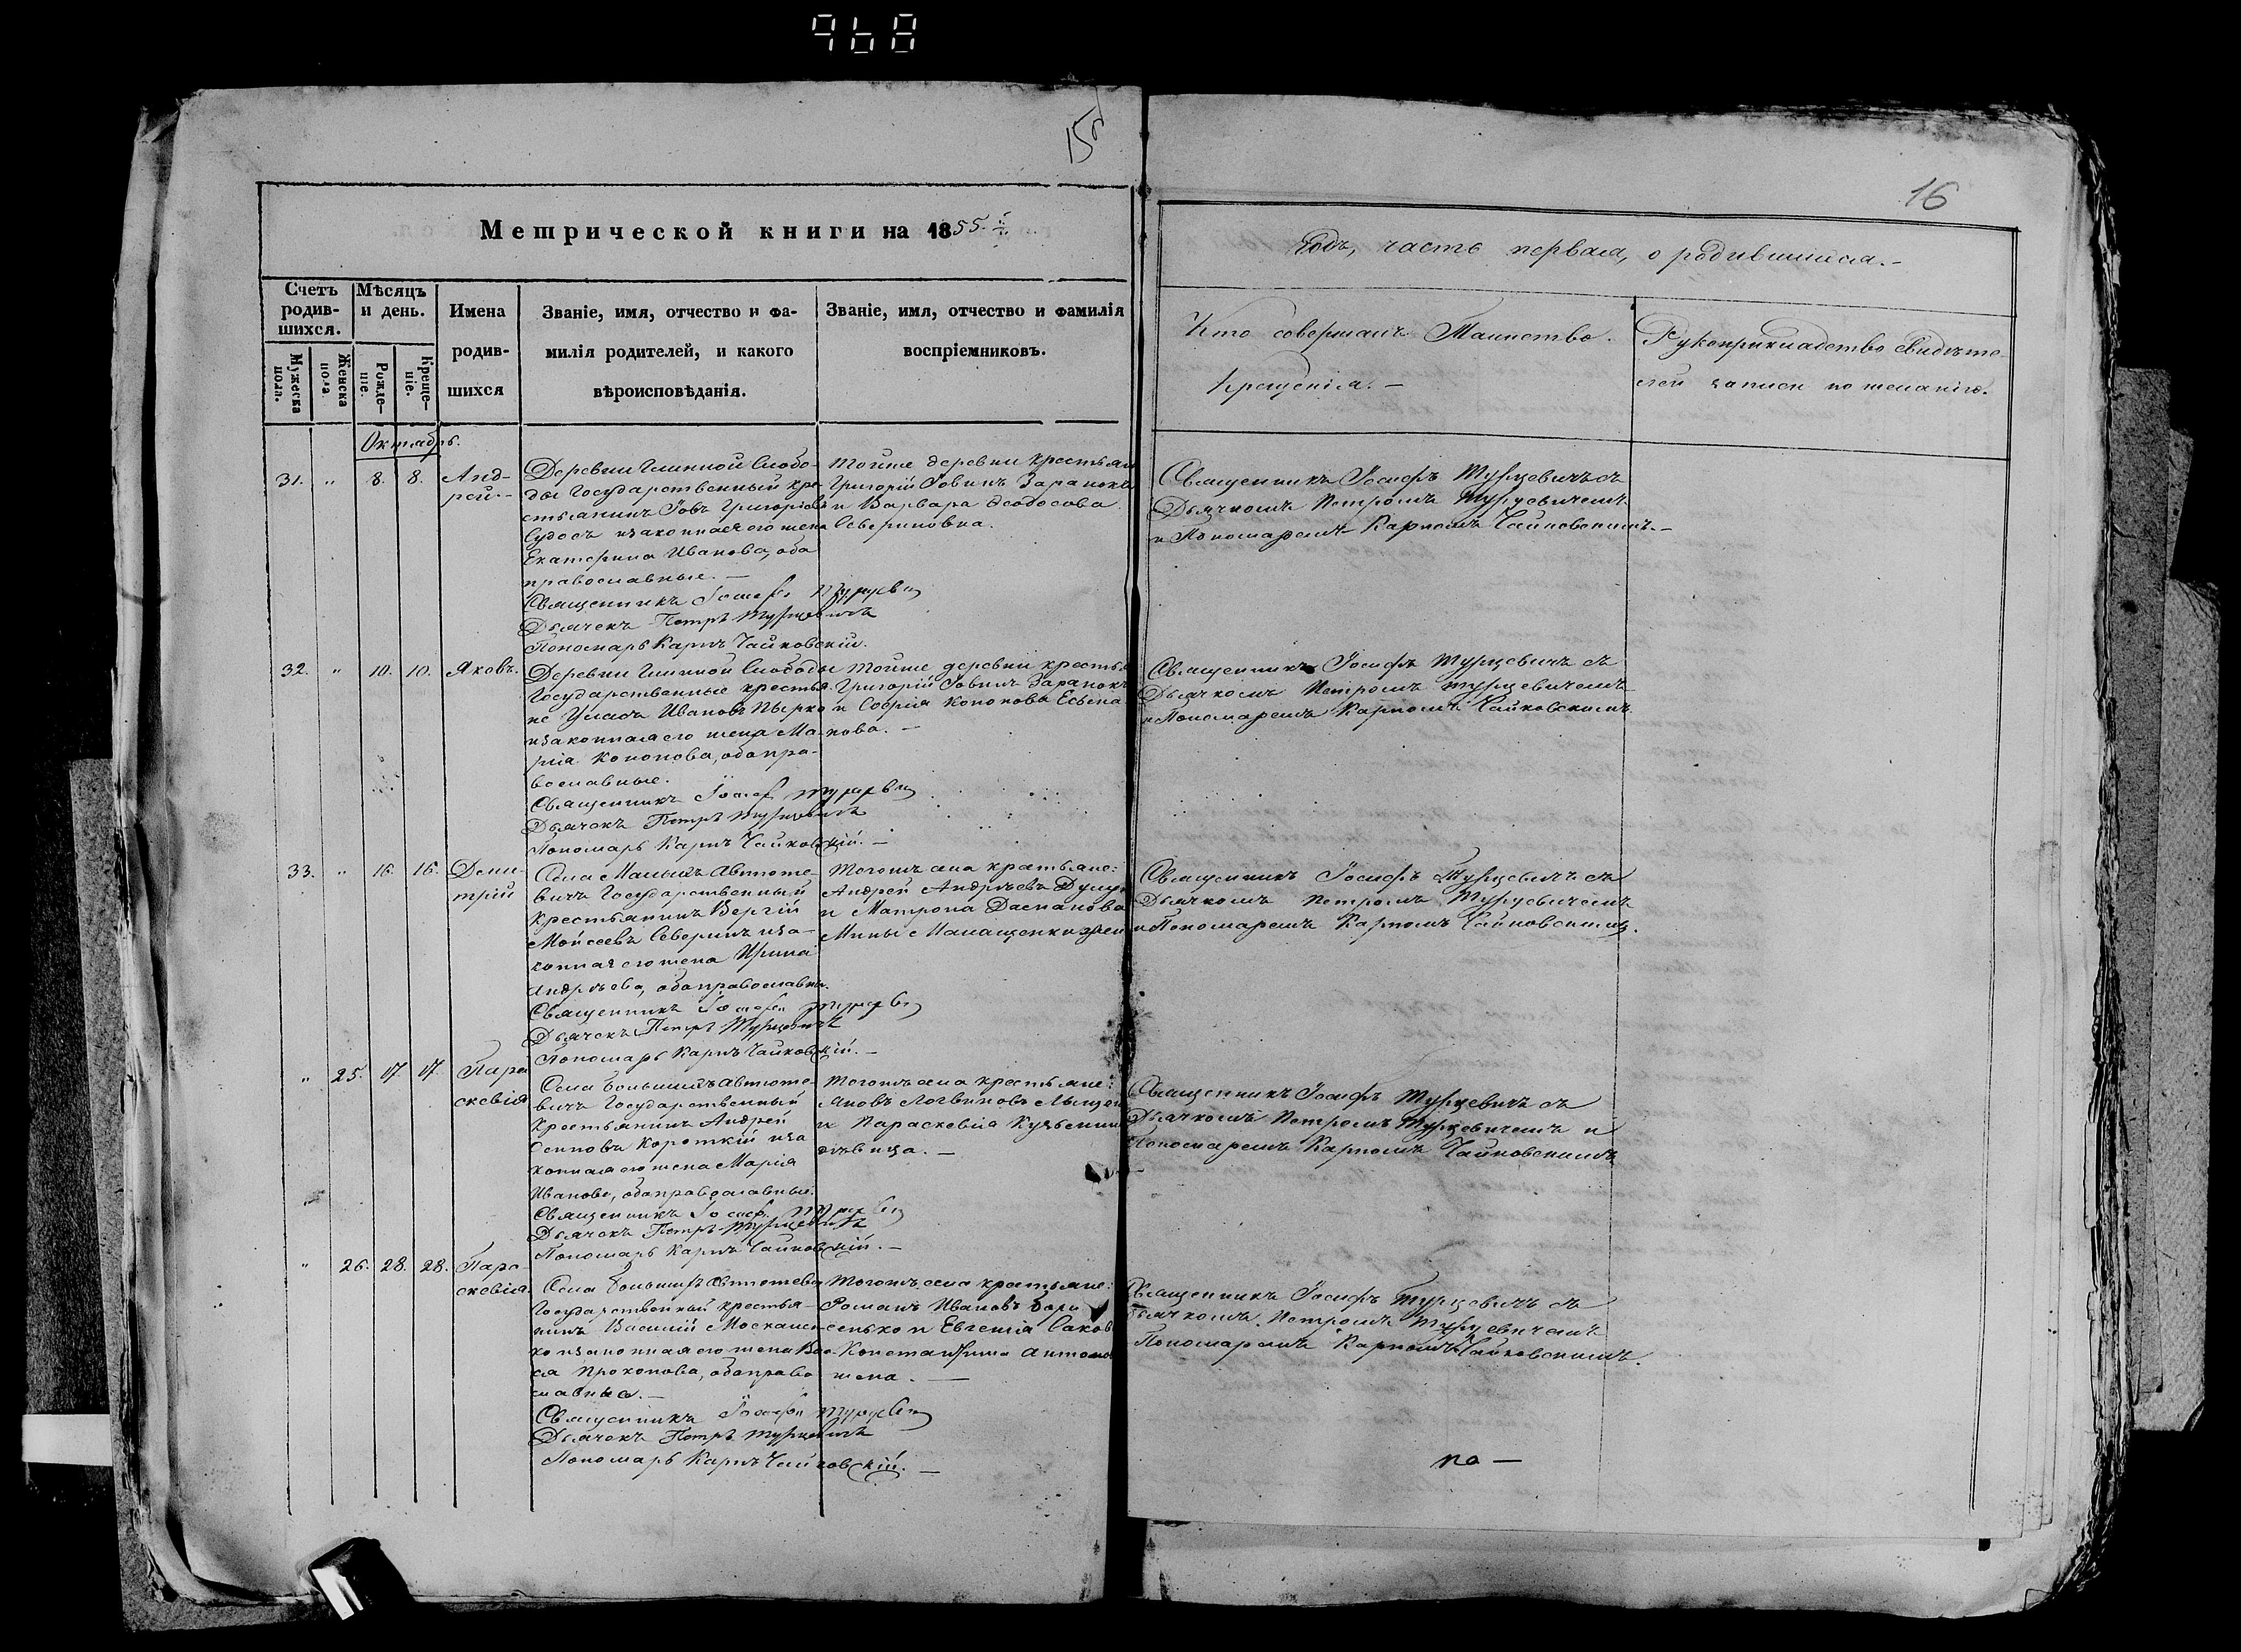 968
15
16
Метрической книги на 1855.
Годъ, часть первая, о родившихся.-
Счетъ родив-шихся.
Мужеска пола.
Женска пола.
Мѣсяцъ и день.
Рожде-ніе.
Креще-ніе.
Имена
родив-
шихся
Званіе, имя, отчество и фа-
милія родителей, и какого
вѣроисповѣданія.
Званіе, имя, отчество и фамилія
воспріемниковъ.
Кто совершалъ Таинство
Крещенія.-
Рукоприкладство свидѣте-
лей записи по желанію.
Октябрь.
31. " 8. 8. Анд-
рей.-
Деревни Глинной Слобо-
ды Государственный кре-
стьянинъ Іовъ Григоріевъ
и законная его жена
Екатерина Иванова, оба
православные.-
Священникъ Іосифъ Турцевичъ
Дьячекъ Петръ Турцевичъ
Пономарь Карпъ Чайковскій.
Тойже деревни крестьяне
Григорій Іовинъ
и Варвара Ѳеодосова
Севериновна.
Священникъ Іосифъ Турцевичъ съ
Дьячкомъ Петромъ Турцевичемъ
и Пономаремъ Карпомъ Чайковскимъ.-
32. " 10. 10. Яковъ.
Деревни Глинной Слободы
Государственные крестья-
не Ивановъ
и законная его жена Ма-
рія Кононова, оба пра-
вославные.
Священникъ Іосифъ Турцевичъ
Дьячекъ Петръ Турцевичъ
Пономарь Карпъ Чайковскій.-
Тойже деревни крестьяне
Григорій Іовинъ
и Софія Кононова
Священникъ Іосифъ Турцевичъ съ
Дьячкомъ Петромъ Турцевичемъ
и Пономаремъ Карпомъ Чайковскимъ
33. " 16. 16. Дими-
трій
Села Малыхъ Автюте-
вичъ Государственный
крестьянинъ
Моисеевъ Северинъ и за-
конная его жена Ирина
Андрѣева, оба православны.
Священникъ Іосифъ Турцевичъ
Дьячекъ Петръ Турцевичъ
Пономарь Карпъ Чайковскій.-
Тогожъ села крестьяне:
Андрей Андрѣевъ
и Матрона
Мины
Священникъ Іосифъ Турцевичъ съ
Дьячкомъ Петромъ Турцевичемъ
и Пономаремъ Карпомъ Чайковскимъ.
" 25. 17. 17. Пара
скевія
Села Большихъ Автюте-
вичъ Государственный
Крестьянинъ Андрей
Осиповъ Короткій и за
конная его жена Марія
Иванова, оба православные.
Священникъ Іосифъ Турцевичъ
Дьячекъ Петръ Турцевичъ
Пономарь Карпъ Чайковскій.-
Тогожъ села крестьяне:
Яковъ Логвиновъ
и Параскевія Кузьмина
дѣвица.-
Священникъ Іосифъ Турцевичъ съ
Дьячкомъ Петромъ Турцевичемъ и
Пономаремъ Карпомъ Чайковскимъ
" 26. 28. 28. Пара
скевія.
Села Большихъ Автютевичъ
Государственный крестья-
нинъ Василій
и законная его жена
Прокопова, оба право
славные.-
Священникъ Іосифъ Турцевичъ
Дьячекъ Петръ Турцевичъ
Пономарь Карпъ Чайковскій.-
Тогожъ села крестьяне:
Романъ Ивановъ
и Евгенія
жена.-
Священникъ Іосифъ Турцевичъ съ
Дьячкомъ Петромъ Турцевичемъ
Пономаремъ Карпомъ Чайковскимъ.
по-